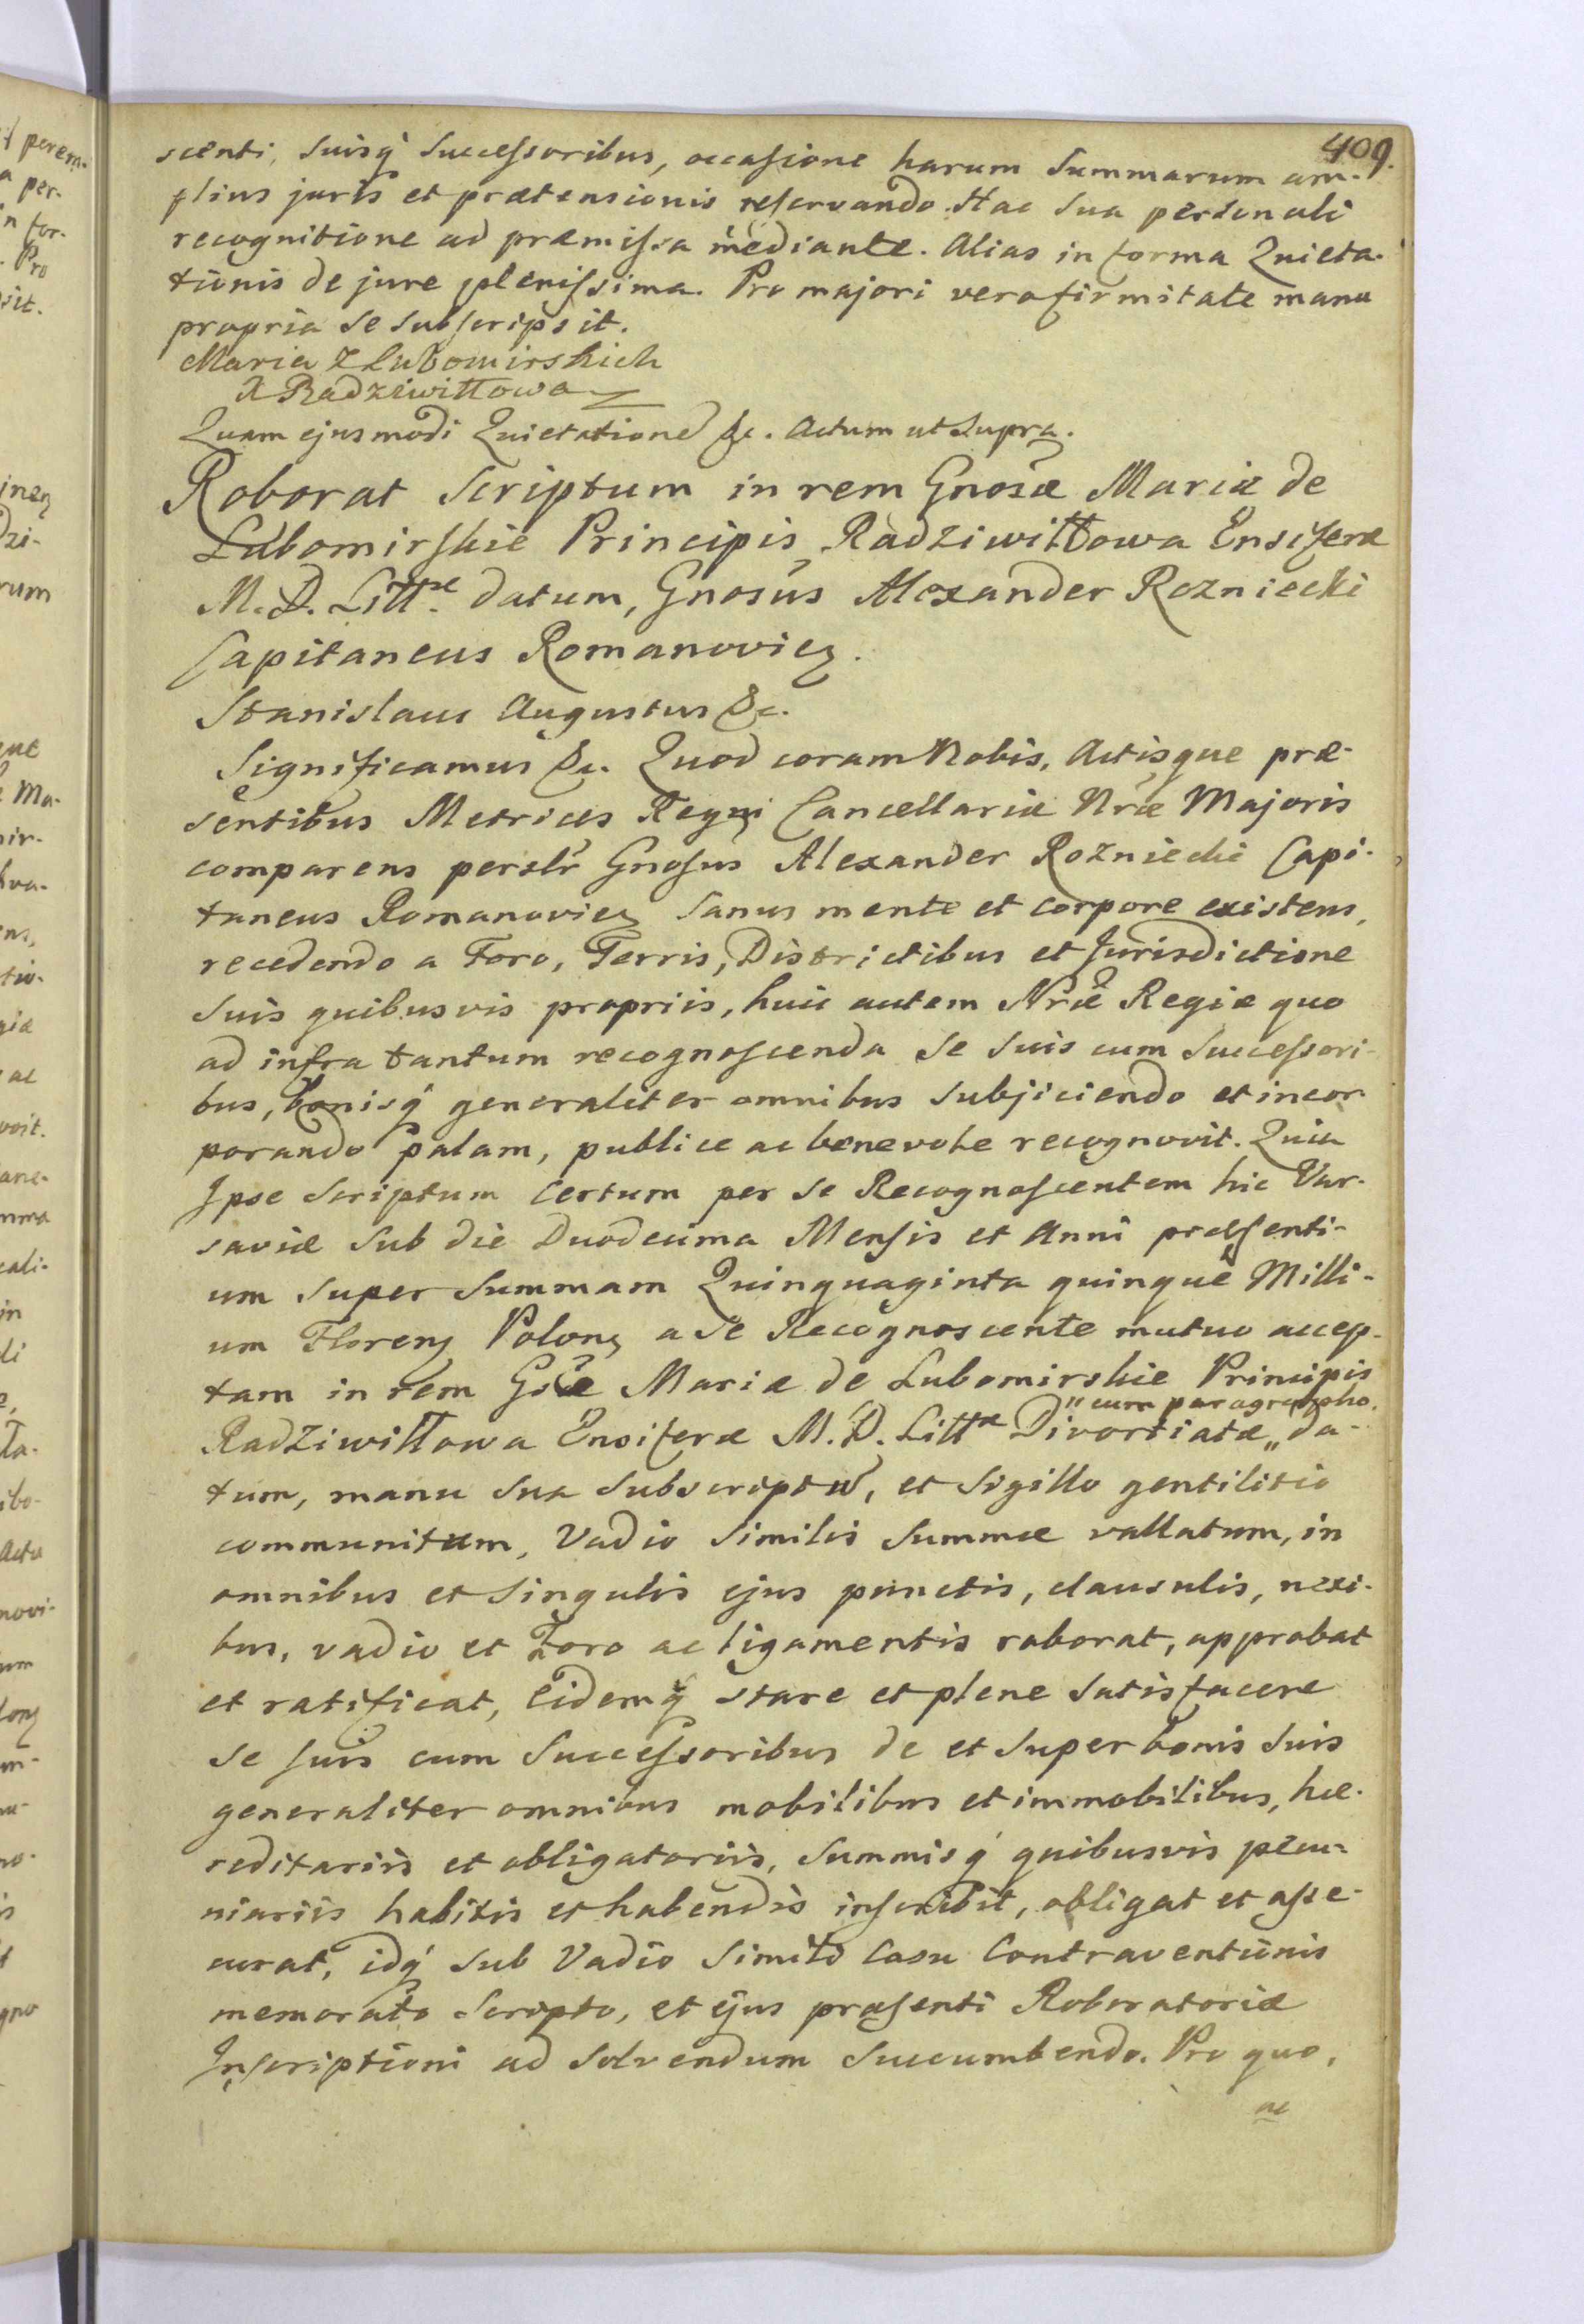 409.
scenti, suisq́ Successoribus, occasione harum Summarum am-
plius juris et prætensionis reservando. Hac sua personali
recognitione ad præmissa mediante. Alias in forma Quieta-
tionis de jure plenissima. Pro majori vero firmitate manu
propria se subscripsit.
Maria z Lubomirskich
X Radziwiłłowa
Quam ejusmodi Quietatione &c. Actum ut Supra.
Roborat Scriptum in rem Gnosæ Mariæ de
Lubomirskie Principis Radziwiłłowa Ensiferæ
M. D. Littæ. datum, Gnosus Alexander Rozniecki
Capitaneus Romanovien.
Stanislaus Augustus &c.
Significamus &c. Quod coram Nobis, Actisque præ-
sentibus Metrices Regni Cancellariæ Nræ Majoris
comparens perslr Gnosus Alexander Rozniecki Capi-
taneus Romanovien sanus mente et corpore existens,
recedendo a Foro, Terris, Districtibus et Jurisdictione
suis quibusvis propriis, huic autem Nræ Regiæ quo
ad infra tantum recognoscenda se suis cum Successori-
bus, bonisq́ generaliter omnibus subjiciendo et incor-
porando palam, publice ac benevole recognovit. Quia
Ipse Scriptum certum per se Recognoscentem hic Var-
saviæ sub die Duodecima Mensis et Anni præsenti-
um super Summam Quinquaginta quinque Milli-
um Floren Polon a se Recognoscente mutuo accep-
tam in rem Gsæ Mariæ de Lubomirskie Principis
" cum paragrapho.
Radziwiłłowa Ensiferæ M. D. Littæ Divortiatæ „ da-
tum, manu sua subscriptu, et Sigillo gentilitio
communitum, Vadio similis Summæ vallatum, in
omnibus et singulis ejus punctis, clausulis, nexi-
bus, vadio et Foro ac ligamentis roborat, approbat
et ratificat, Eidemq́ stare et plene satisfacere
se suis cum Successoribus de et super bonis suis
generaliter omnibus mobilibus et immobilibus, hæ-
reditariis et obligatoriis, Summisq́ quibusvis pecu-
niariis habitis et habendis inscribit, obligat et asse-
curat, idq́ sub Vadio simili Casu Contraventionis
memorato Scripto, et ejus præsenti Roboratoriæ
Inscriptioni ad solvendum succumbendo. Pro quo,
ac